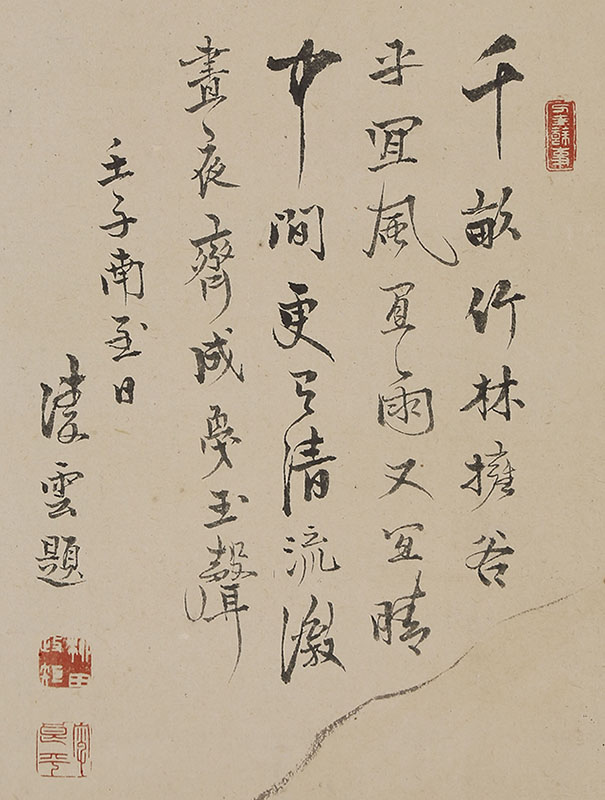 千畝竹林擁谷
平宜風宜雨又宜晴
中間更有清流激
晝夜齊成戛玉聲
壬子南至日
淩雲題